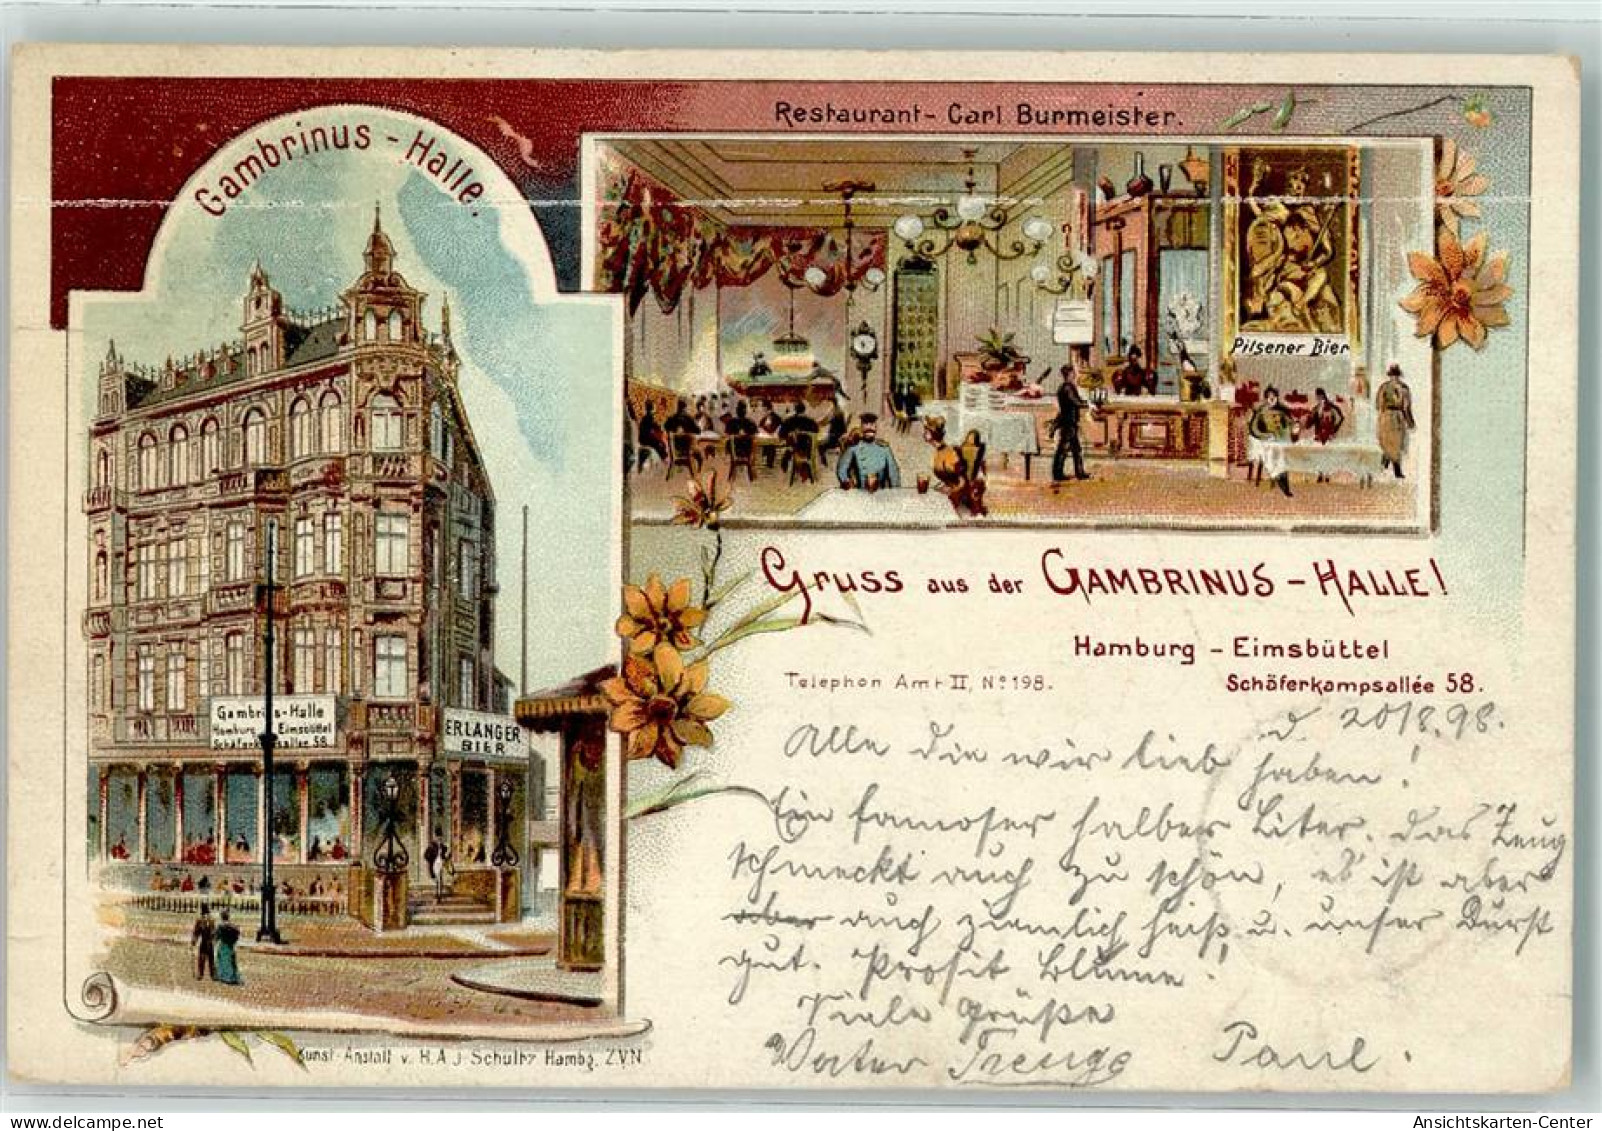 Gambrinus - Halle.
Restaurant - Carl Burmeister.
Pilsener Bier
Gruss aus der GAMBRINUS - HALLE!
Hamburg - Eimsbüttel
Telephon Amt II, No 198.
Schäferkampsallée 58.
Gambrinus-Halle
Hamburg Eimsbüttel
Schäferkampsallee 58
ERLANGER
BIER
d 20/8.98.
Alle die wir lieb haben!
Ein famoser halber Liter. Das Zeug
schmeckt auch zu schön, es ist aber
aber auch ziemlich heiß u. unser Durst
gut. Prosit Blume!
Viele Grüße
Paul.
Kunst-Anstalt v. H. A. J. Schultz Hambg. Z.V.N.
Ansichtskarten-Center